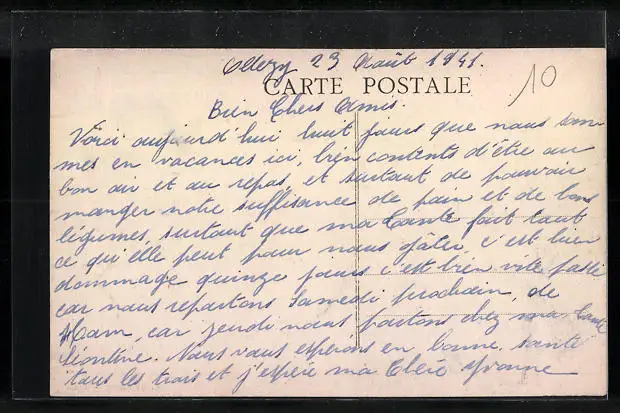 Ollezy 23 Août 1941.
CARTE POSTALE
10
Bien Chers Amis.
Voici aujourd'hui huit jours que nous som
mes en vacances ici, bien contents d'être au
bon air et au repos, et surtout de pouvoir
manger notre suffisance de pain et de bons
légumes, surtout que ma tante fait tout
ce qu'elle peut pour nous gâter, c'est bien
dommage quinze jours c'est bien vite passé
car nous repartons Samedi prochain, de
Ham, car jeudi nous partons chez ma tante
Léontine. Nous vous espérons en bonne santé
tous les trois et j'espère ma Chère Yvonne